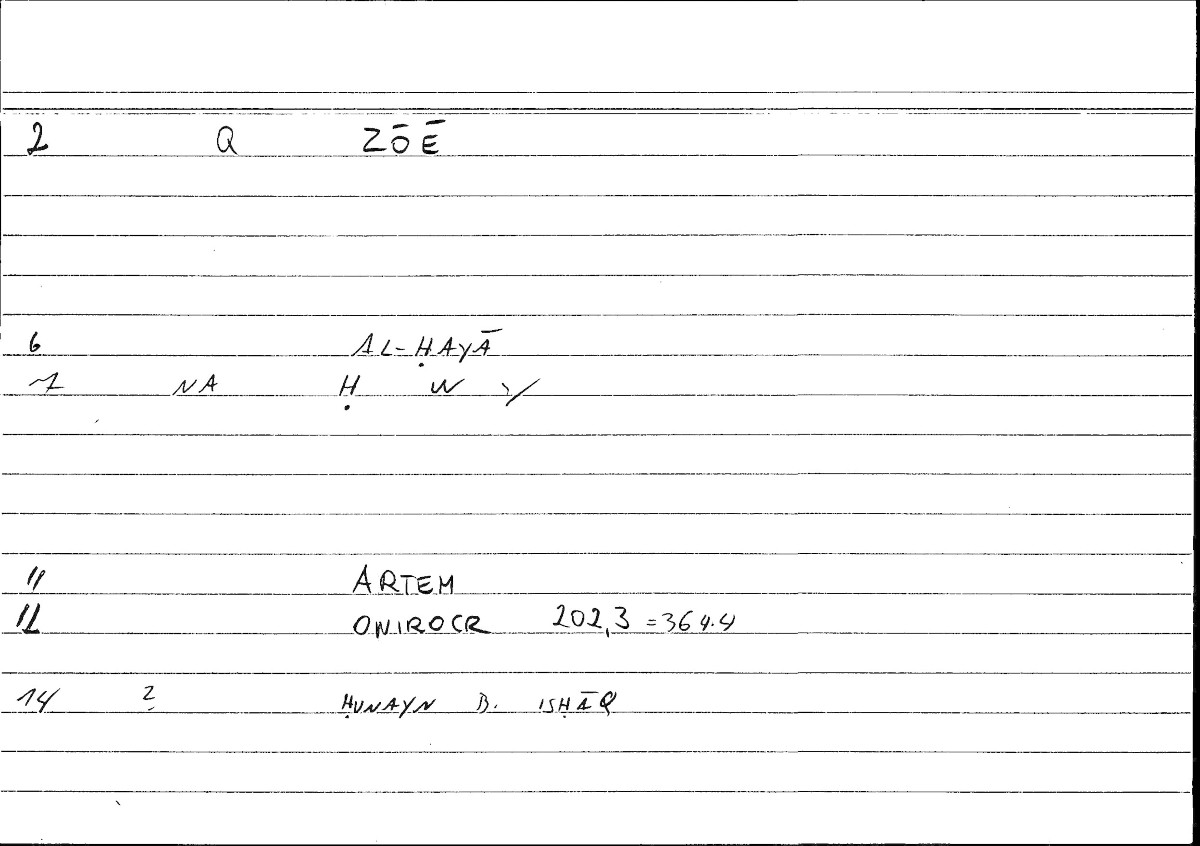 2 Q ZŌĒ
6 AL-ḤAYĀ
7 NA Ḥ W Y
11 ARTEM
12 ONIROCR 202,3 = 364.4
14 2 ḤUNAYN B. ISḤĀQ